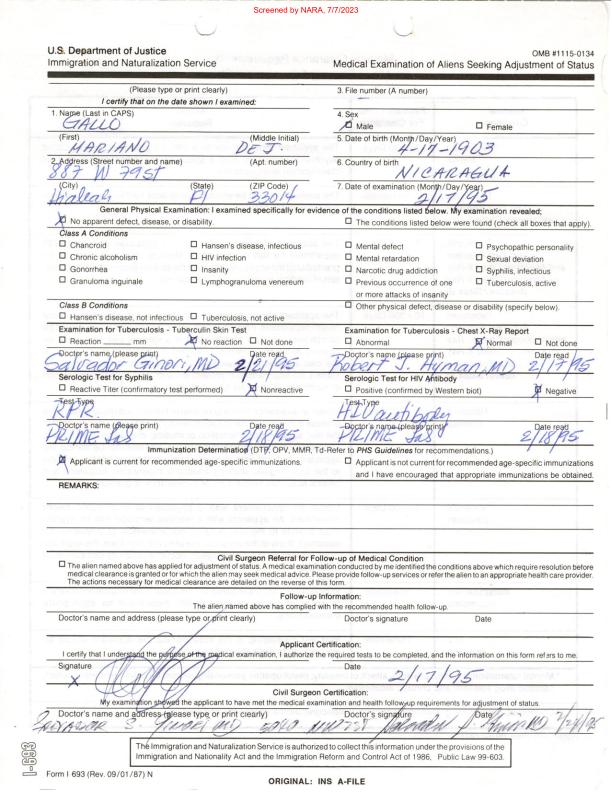 Screened by NARA, 7/7/2023
U.S. Department of Justice
Immigration and Naturalization Service
OMB #1115-0134
Medical Examination of Aliens Seeking Adjustment of Status
(Please type or print clearly)
I certify that on the date shown I examined:
3. File number (A number)
1. Name (Last in CAPS)
GALLO
4. Sex
Male Female
(First) (Middle Initial)
MARIANO DE J.
5. Date of birth (Month/Day/Year)
4-17-1903
2. Address (Street number and name) (Apt. number)
887 W 79st
6. Country of birth
NICARAGUA
(City) (State) (ZIP Code)
Hialeah Fl 33014
7. Date of examination (Month/Day/Year)
2/17/95
General Physical Examination: I examined specifically for evidence of the conditions listed below. My examination revealed;
No apparent defect, disease, or disability. The conditions listed below were found (check all boxes that apply).
Class A Conditions
Chancroid Hansen's disease, infectious Mental defect Psychopathic personality
Chronic alcoholism HIV infection Mental retardation Sexual deviation
Gonorrhea Insanity Narcotic drug addiction Syphilis, infectious
Granuloma inguinale Lymphogranuloma venereum Previous occurrence of one Tuberculosis, active
or more attacks of insanity
Class B Conditions
Other physical defect, disease or disability (specify below).
Hansen's disease, not infectious Tuberculosis, not active
Examination for Tuberculosis - Tuberculin Skin Test
Reaction ______ mm No reaction Not done
Examination for Tuberculosis - Chest X-Ray Report
Abnormal Normal Not done
Doctor's name (please print) Date read
Salvador Ginori, MD 2/21/95
Doctor's name (please print) Date read
Robert J. Hyman, MD 2/17/95
Serologic Test for Syphilis
Reactive Titer (confirmatory test performed) Nonreactive
Serologic Test for HIV Antibody
Positive (confirmed by Western blot) Negative
Test Type
RPR.
Test Type
HIV antibody
Doctor's name (please print) Date read
PRIME Lab 2/18/95
Doctor's name (please print) Date read
PRIME Lab 2/18/95
Immunization Determination (DTP, OPV, MMR, Td-Refer to PHS Guidelines for recommendations.)
Applicant is current for recommended age-specific immunizations.
Applicant is not current for recommended age-specific immunizations
and I have encouraged that appropriate immunizations be obtained.
REMARKS:
Civil Surgeon Referral for Follow-up of Medical Condition
The alien named above has applied for adjustment of status. A medical examination conducted by me identified the conditions above which require resolution before
medical clearance is granted or for which the alien may seek medical advice. Please provide follow-up services or refer the alien to an appropriate health care provider.
The actions necessary for medical clearance are detailed on the reverse of this form.
Follow-up Information:
The alien named above has complied with the recommended health follow-up.
Doctor's name and address (please type or print clearly) Doctor's signature Date
Applicant Certification:
I certify that I understand the purpose of the medical examination, I authorize the required tests to be completed, and the information on this form refers to me.
Signature Date
X 2/17/95
Civil Surgeon Certification:
My examination showed the applicant to have met the medical examination and health follow-up requirements for adjustment of status.
Doctor's name and address (please type or print clearly) Doctor's signature Date
The Immigration and Naturalization Service is authorized to collect this information under the provisions of the
Immigration and Nationality Act and the Immigration Reform and Control Act of 1986, Public Law 99-603.
I-693
Form I 693 (Rev. 09/01/87) N
ORIGINAL: INS A-FILE